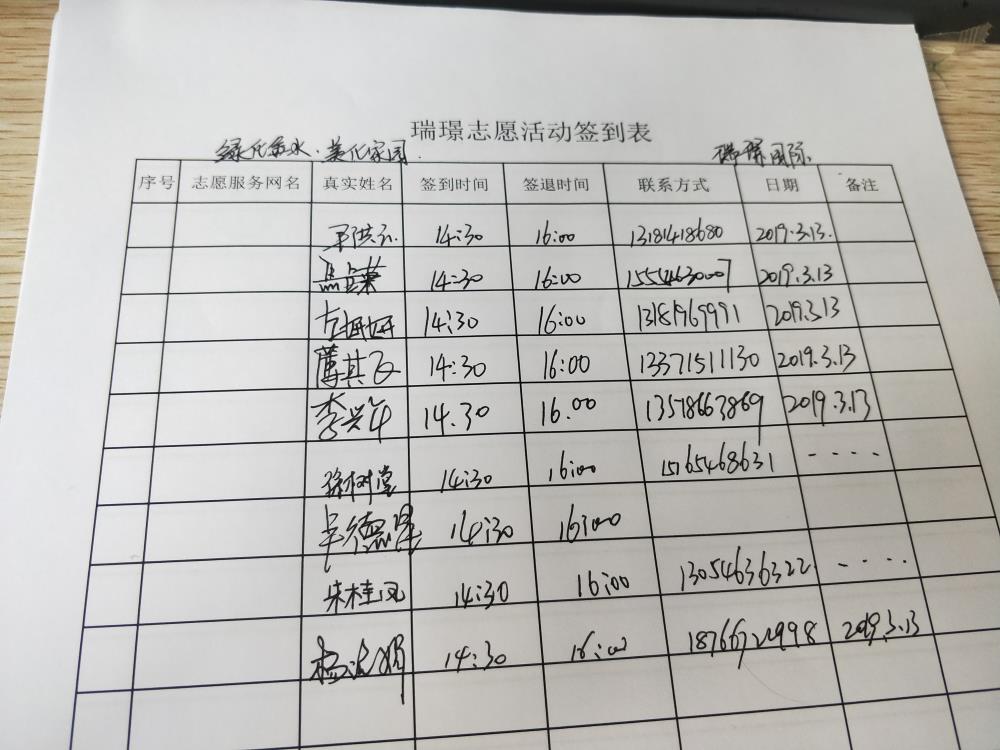 瑞璟志愿活动签到表
美化家园.
瑞璟国际.
序号 志愿服务网名 真实姓名 签到时间 签退时间 联系方式 日期 备注
14:30 16:00 13181418680 2019.3.13.
14:30 16:00 15554630007 2019.3.13
14:30 16:00 13181969991 2019.3.13
薄其飞 14:30 16:00 13371511130 2019.3.13
李兴年 14.30 16.00 13578663869 2019.3.13
徐树堂 14:30 16:00 15165468631 ----
14:30 16:00
朱桂凤 14:30 16:00 13054636322. ----
14:30 16:00 2019.3.13